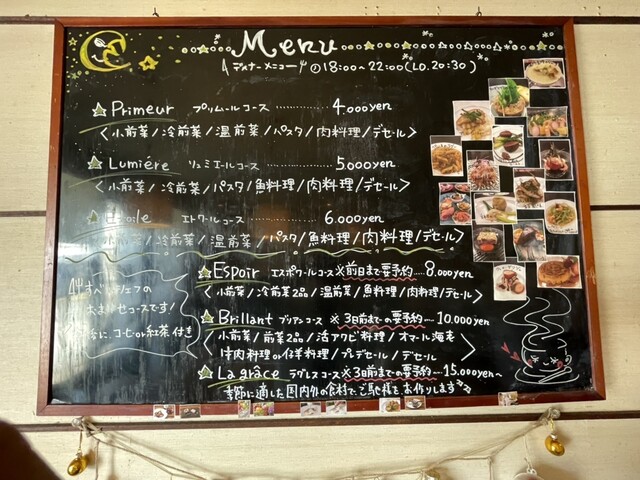 Menu
ディナーメニュー 18:00〜22:00(LO.20:30)
Primeur プリムールコース 4.000yen
<小前菜/冷前菜/温前菜/パスタ/肉料理/デセール>
Lumiére リュミエールコース 5.000yen
<小前菜/冷前菜/パスタ/魚料理/肉料理/デセール>
エトワールコース 6.000yen
小前菜/冷前菜/温前菜/パスタ/魚料理/肉料理/デセール>
Espoir エスポワールコース ※前日まで要予約 8,000yen
<小前菜/冷前菜2品/温前菜/魚料理/肉料理/デセール>
Brillant ブリアンコース ※3日前までの要予約 10.000yen
<小前菜/前菜2品/活アワビ料理/オマール海老
牛肉料理or仔羊料理/プレデセール/デセール>
La grâce ラグレスコース※3日前までの要予約 15.000yen〜
季節に適した国内外の食材で、ご馳走を、お作りします
シェフの
おまかせコースです!
コーヒーor紅茶付き